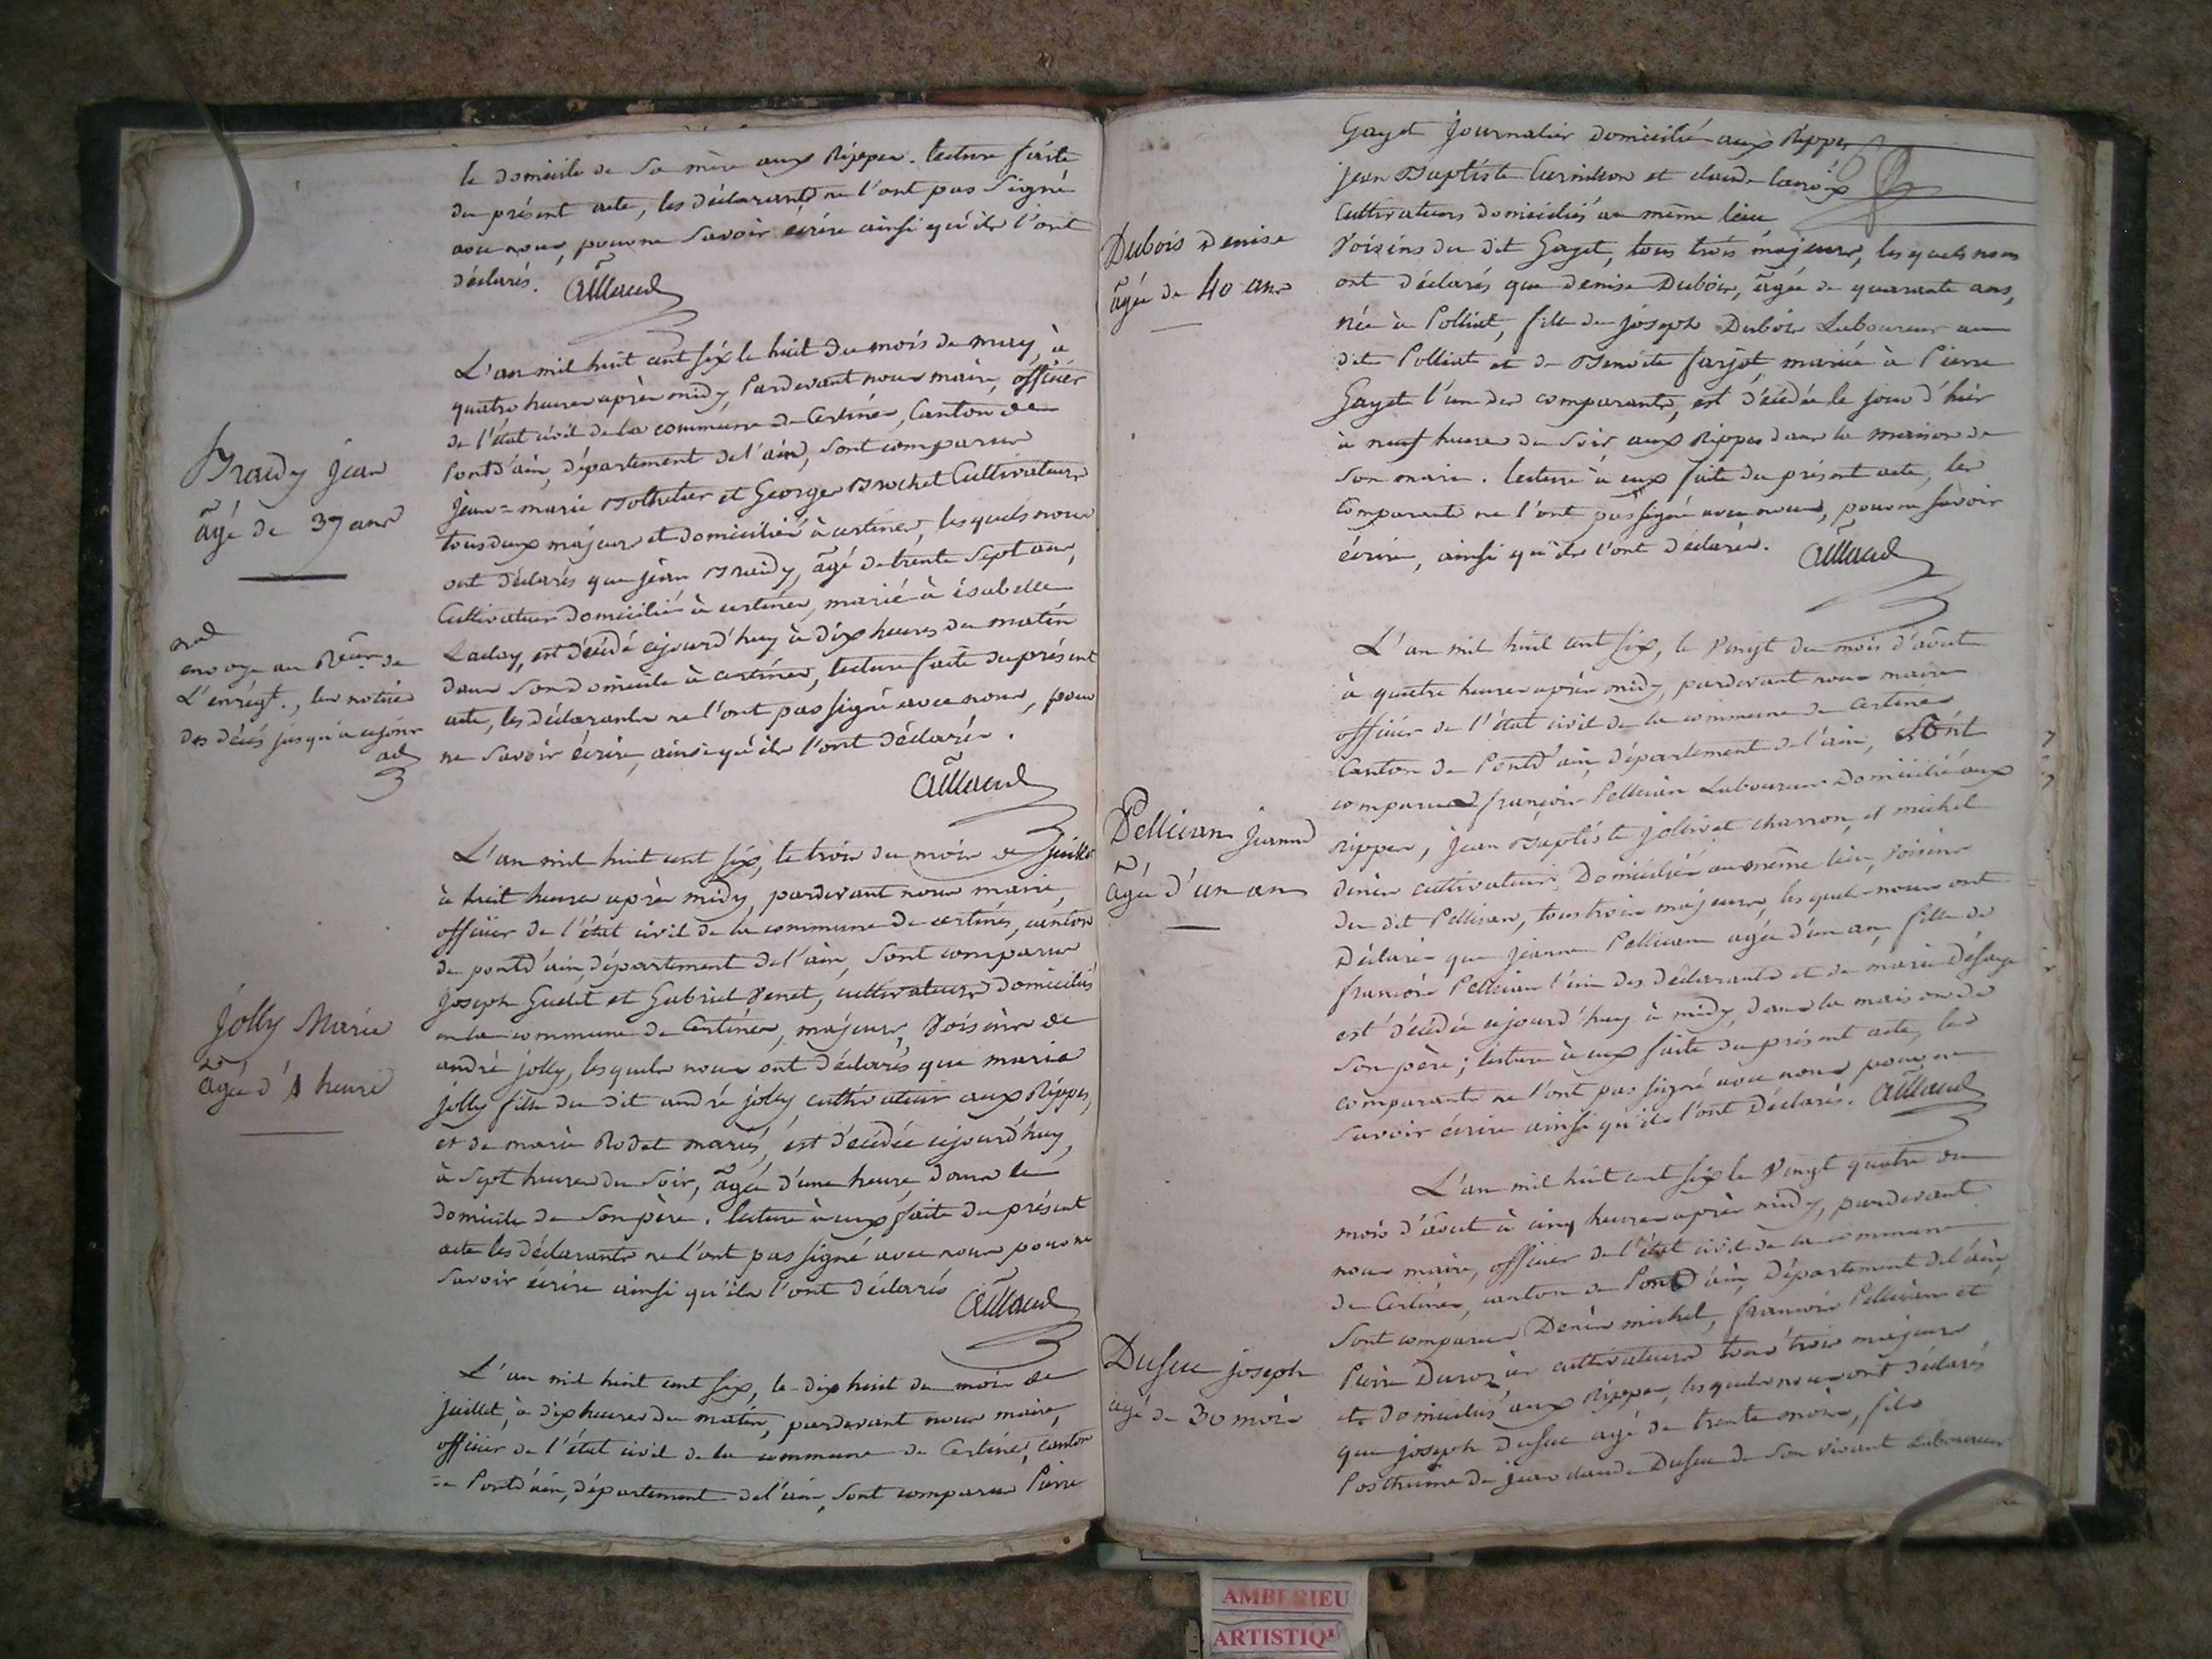 le domicile de sa mère aux Rippes. lecture faite
du présent acte, les déclarants ne l'ont pas signé
avec nous, pour ne savoir écrire ainsi qu'ils l'ont
déclarés. aillaud
Braidy jean
âgé de 37 ans
L'an mil huit cent six le huit du mois de may, à
quatre heures après midy, Pardevant nous maire, officier
de l'état civil de la commune de Certines, Canton de
Pontd'ain, département de l'ain, sont comparus
jean=marie et George Brochet Cultivateurs
tous deux majeurs et domiciliés à certines, lesquels nous
ont déclarés que jean Braidy, âgé de trente sept ans,
Cultivateur domicilié à certines, marié à isabelle
est décédé cejourd'huy à dix heures du matin
dans son domicile à certines, lecture faite du présent
acte, les déclarants ne l'ont pas signé avec nous, pour
ne savoir écrire, ainsi qu'ils l'ont déclarés.
aillaud
envoye au de
L'enregt., les notices
des décés jusqu'à ce jour
L'an mil huit cent six, le trois du mois de juillet
à huit heures après midy, pardevant nous maire,
officier de l'état civil de la commune de certines, canton
de pontd'ain, département de l'ain, sont comparus
joseph et Gabriel Venet, cultivateurs domiciliés
en la commune de Certines, majeurs, Voisins de
andré jolly, lesquels nous ont déclarés que marie
jolly fille du dit andré jolly cultivateur aux Rippes,
et de marie Rodet mariés, est décédée cejourd'huy,
à sept heures du soir, âgée d'une heure, dans le
domicile de son père. lecture à eux faite du présent
acte les déclarants ne l'ont pas signé avec nous pour ne
savoir écrire ainsi qu'ils l'ont déclarés
aillaud
jolly Marie
âgée d'1 heure
L'an mil huit cent six, le dix huit du mois de
juillet, à dix heures du matin, pardevant nous maire,
officier de l'état civil de la commune de Certines, canton
de Pontd'ain, département de l'ain, sont comparus Pierre
Gayet journalier domicilié aux Rippes
jean Baptiste et claude lacroix
cultivateurs domiciliés au même lieu
Voisins du dit Gayet, tous trois majeurs, lesquels nous
ont déclarés que denise Dubois, âgée de quarante ans,
née à Polliat, fille de joseph Dubois Laboureur au
dit Polliat et de Benoite farjot, mariée à Pierre
Gayet l'un des comparants, est décédée le jour d'hier
à neuf heures du soir, aux Rippes dans la maison de
son mari. lecture à eux faite du présent acte, les
comparants ne l'ont pas signé avec nous, pour ne savoir
écrire, ainsi qu'ils l'ont déclarés. aillaud
Dubois Denise
âgée de 40 ans
L'an mil huit cent six, le Vingt du mois d'août
à quatre heures après midy, pardevant nous maire
officier de l'état civil de la commune de Certines
Canton de Pontd'ain, département de l'ain, sont
comparus françois Pellician Laboureur Domicilié aux
rippes, jean Baptiste jolivet charron, et michel
cultivateur Domiciliés au même lieu, voisins
du dit Pellician, tous trois majeurs, lesquels nous ont
Déclarés que jeanne Pellician agée d'un an, fille de
françois Pellician l'un des déclarants et de marie
est décédée cejourd'huy à midy, dans la maison de
son père; lecture à eux faite du présent acte, les
comparants ne l'ont pas signé avec nous pour ne
savoir écrire ainsi qu'ils l'ont Déclarés. aillaud
Pellician jeanne
âgée d'un an
L'an mil huit cent six le Vingt quatre du
mois d'août à cinq heures après midy, pardevant
nous maire, officier de l'état civil de la commune
de Certines, canton de Pontd'ain, Département de l'ain,
sont comparus michel, françois Pellician et
Pierre cultivateurs tous trois majeurs
et domiciliés aux Rippes, lesquels nous ont déclarés
que joseph Dufuc agé de trente mois, fils
Posthume de jean claude Dufuc de son vivant Laboureur
Dufuc joseph
agé de 30 mois
AMBERIEU
ARTISTIQU